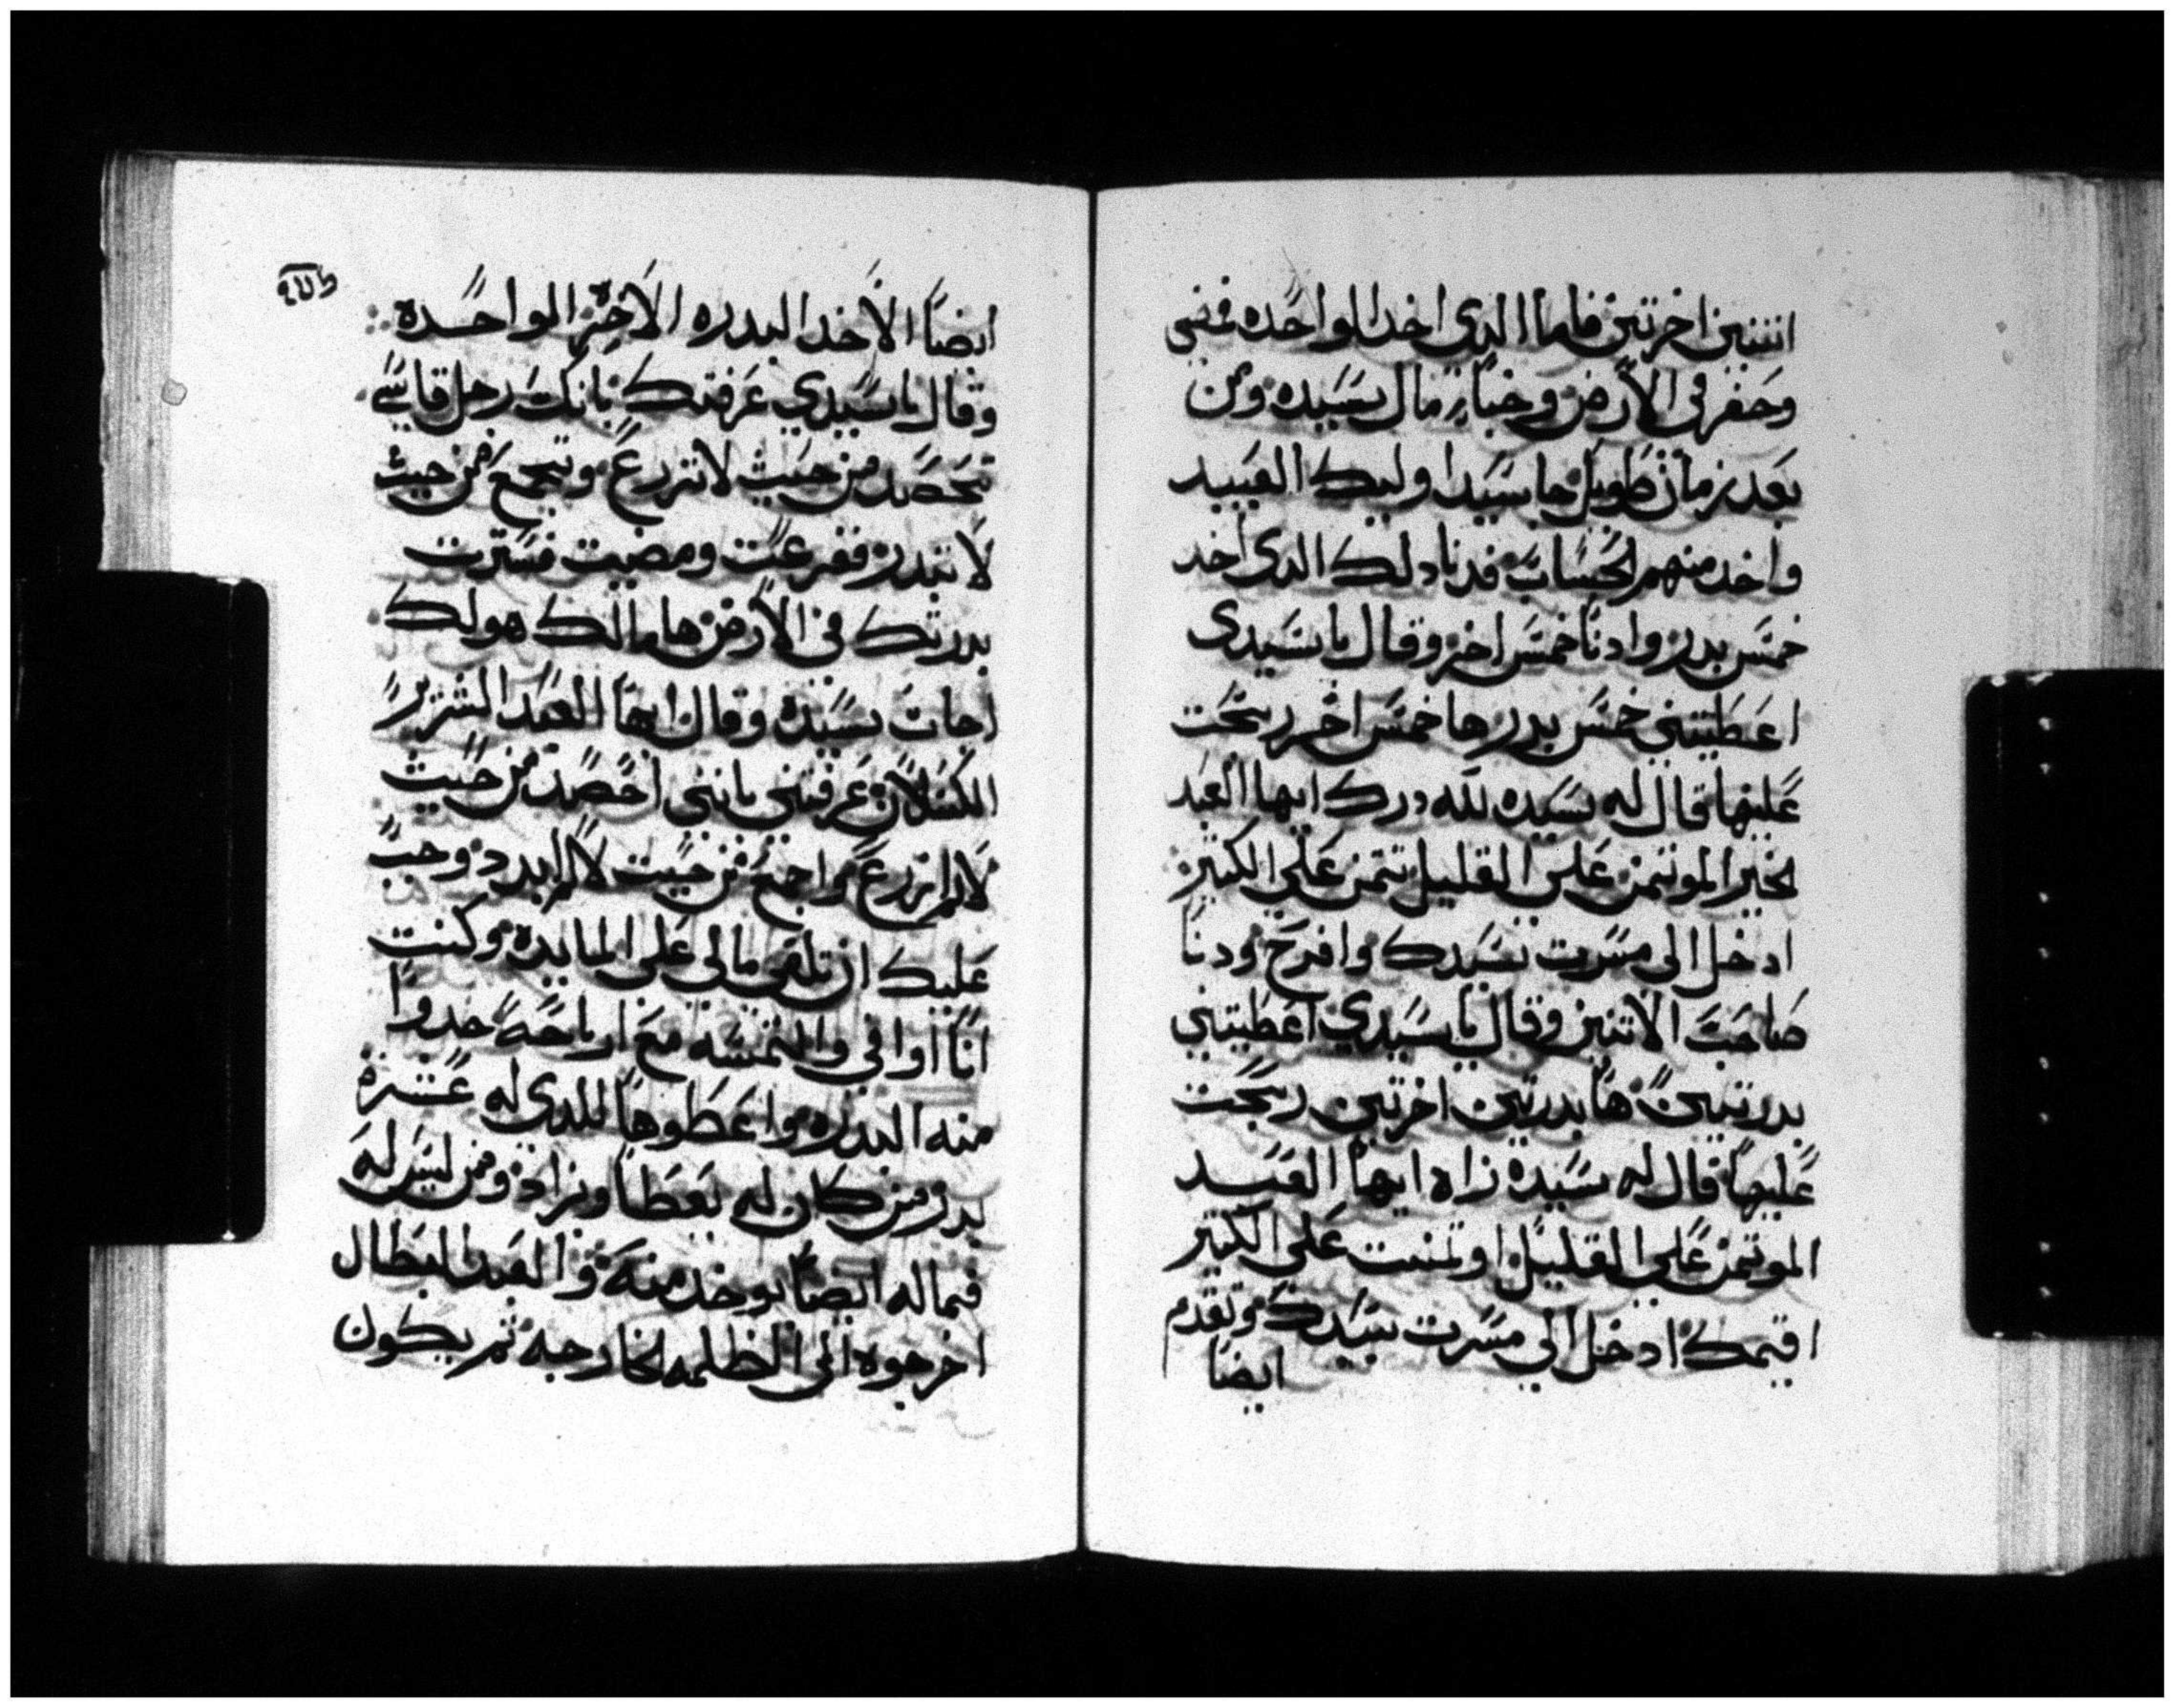 اثنتين اخرتين فاما الدى اخد الواحده فمضى
وحفر في الارض وخباء مال سيده ومن
بعد زمان طويل جا سيد اوليك العبيد
واخد منهم الحساب فدنا دلك الدى اخد
خمس بدر وادنا خمس اخر وقال يا سيدى
اعطيتني خمس بدر ها خمس اخر ربحت
عليها قال له سيده لله درك ايها العبد
الخير الموتمن على القليل تتمن على الكثير
ادخل الى مسرت سيدك وافرح ودنا
صاحب الاتنين وقال يا سيدي اعطيتني
بدرتين ها بدرتين اخرتين ربحت
عليها قال له سيده زاه ايها العبد
الموتمن على القليل اوتمنت على الكثير
اقيمك ادخل الى مسرت سيدك وتقدم
ايضا
ايضا الاخد البدره الاخره الواحده
وقال يا سيدي عرفتك بانك رجل قاسي
تحصد من حيث لا تزرع وتجمع من حيث
لا تبدر ففزعت ومضيت فسترت
بدرتك في الارض ها مالك هو لك
اجاب سيده وقال ايها العبد الشرير
الكسلان عرفتني بانني احصد من حيث
لا لم ازرع واجمع من حيت لا لم ابدر وجب
عليك ان تلقي مالى على المايده وكنت
انا اوافي والتمسه مع ارباحه خدوا
منه البدره واعطوها للدى له عشرة
بدر ومن كان له يعطا ويزاد ومن ليس له
فماله ايضا يوخد منه والعبد البطال
اخرجوه الى الظلمه الخارجه ثم يكون